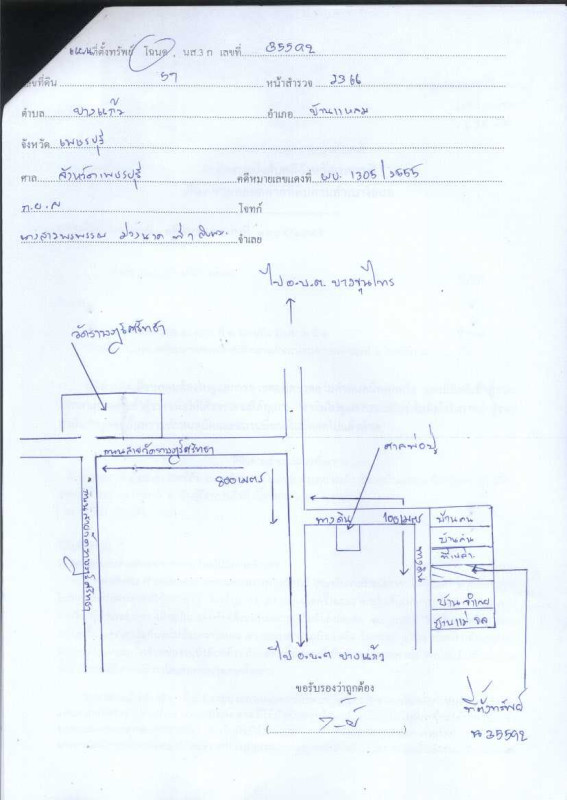 แผนที่ตั้งทรัพย์ โฉนด, นส.3 ก เลขที่ 35592
เลขที่ดิน 57 หน้าสำรวจ 2366
ตำบล บางแก้ว อำเภอ บ้านแหลม
จังหวัด เพชรบุรี
ศาล จังหวัดเพชรบุรี คดีหมายเลขแดงที่ ผบ. 1305/2555
ก.ย.ศ โจทก์
นางสาวพรพรรณ จำเลย
ไป อ.บ.ต. บางขุนไทร
วัดราษฎร์ศรัทธา
ถนนสายวัดราษฎร์ศรัทธา
ศาลพ่อปู่
800 เมตร
ทางดิน 100 เมตร
บ้านคน
ทางดิน
บ้านคน
ที่เปล่า
บ้านจำเลย
ไป อ.บ.ต บางแก้ว
ขอรับรองว่าถูกต้อง
ที่ตั้งทรัพย์
ฉ 35592